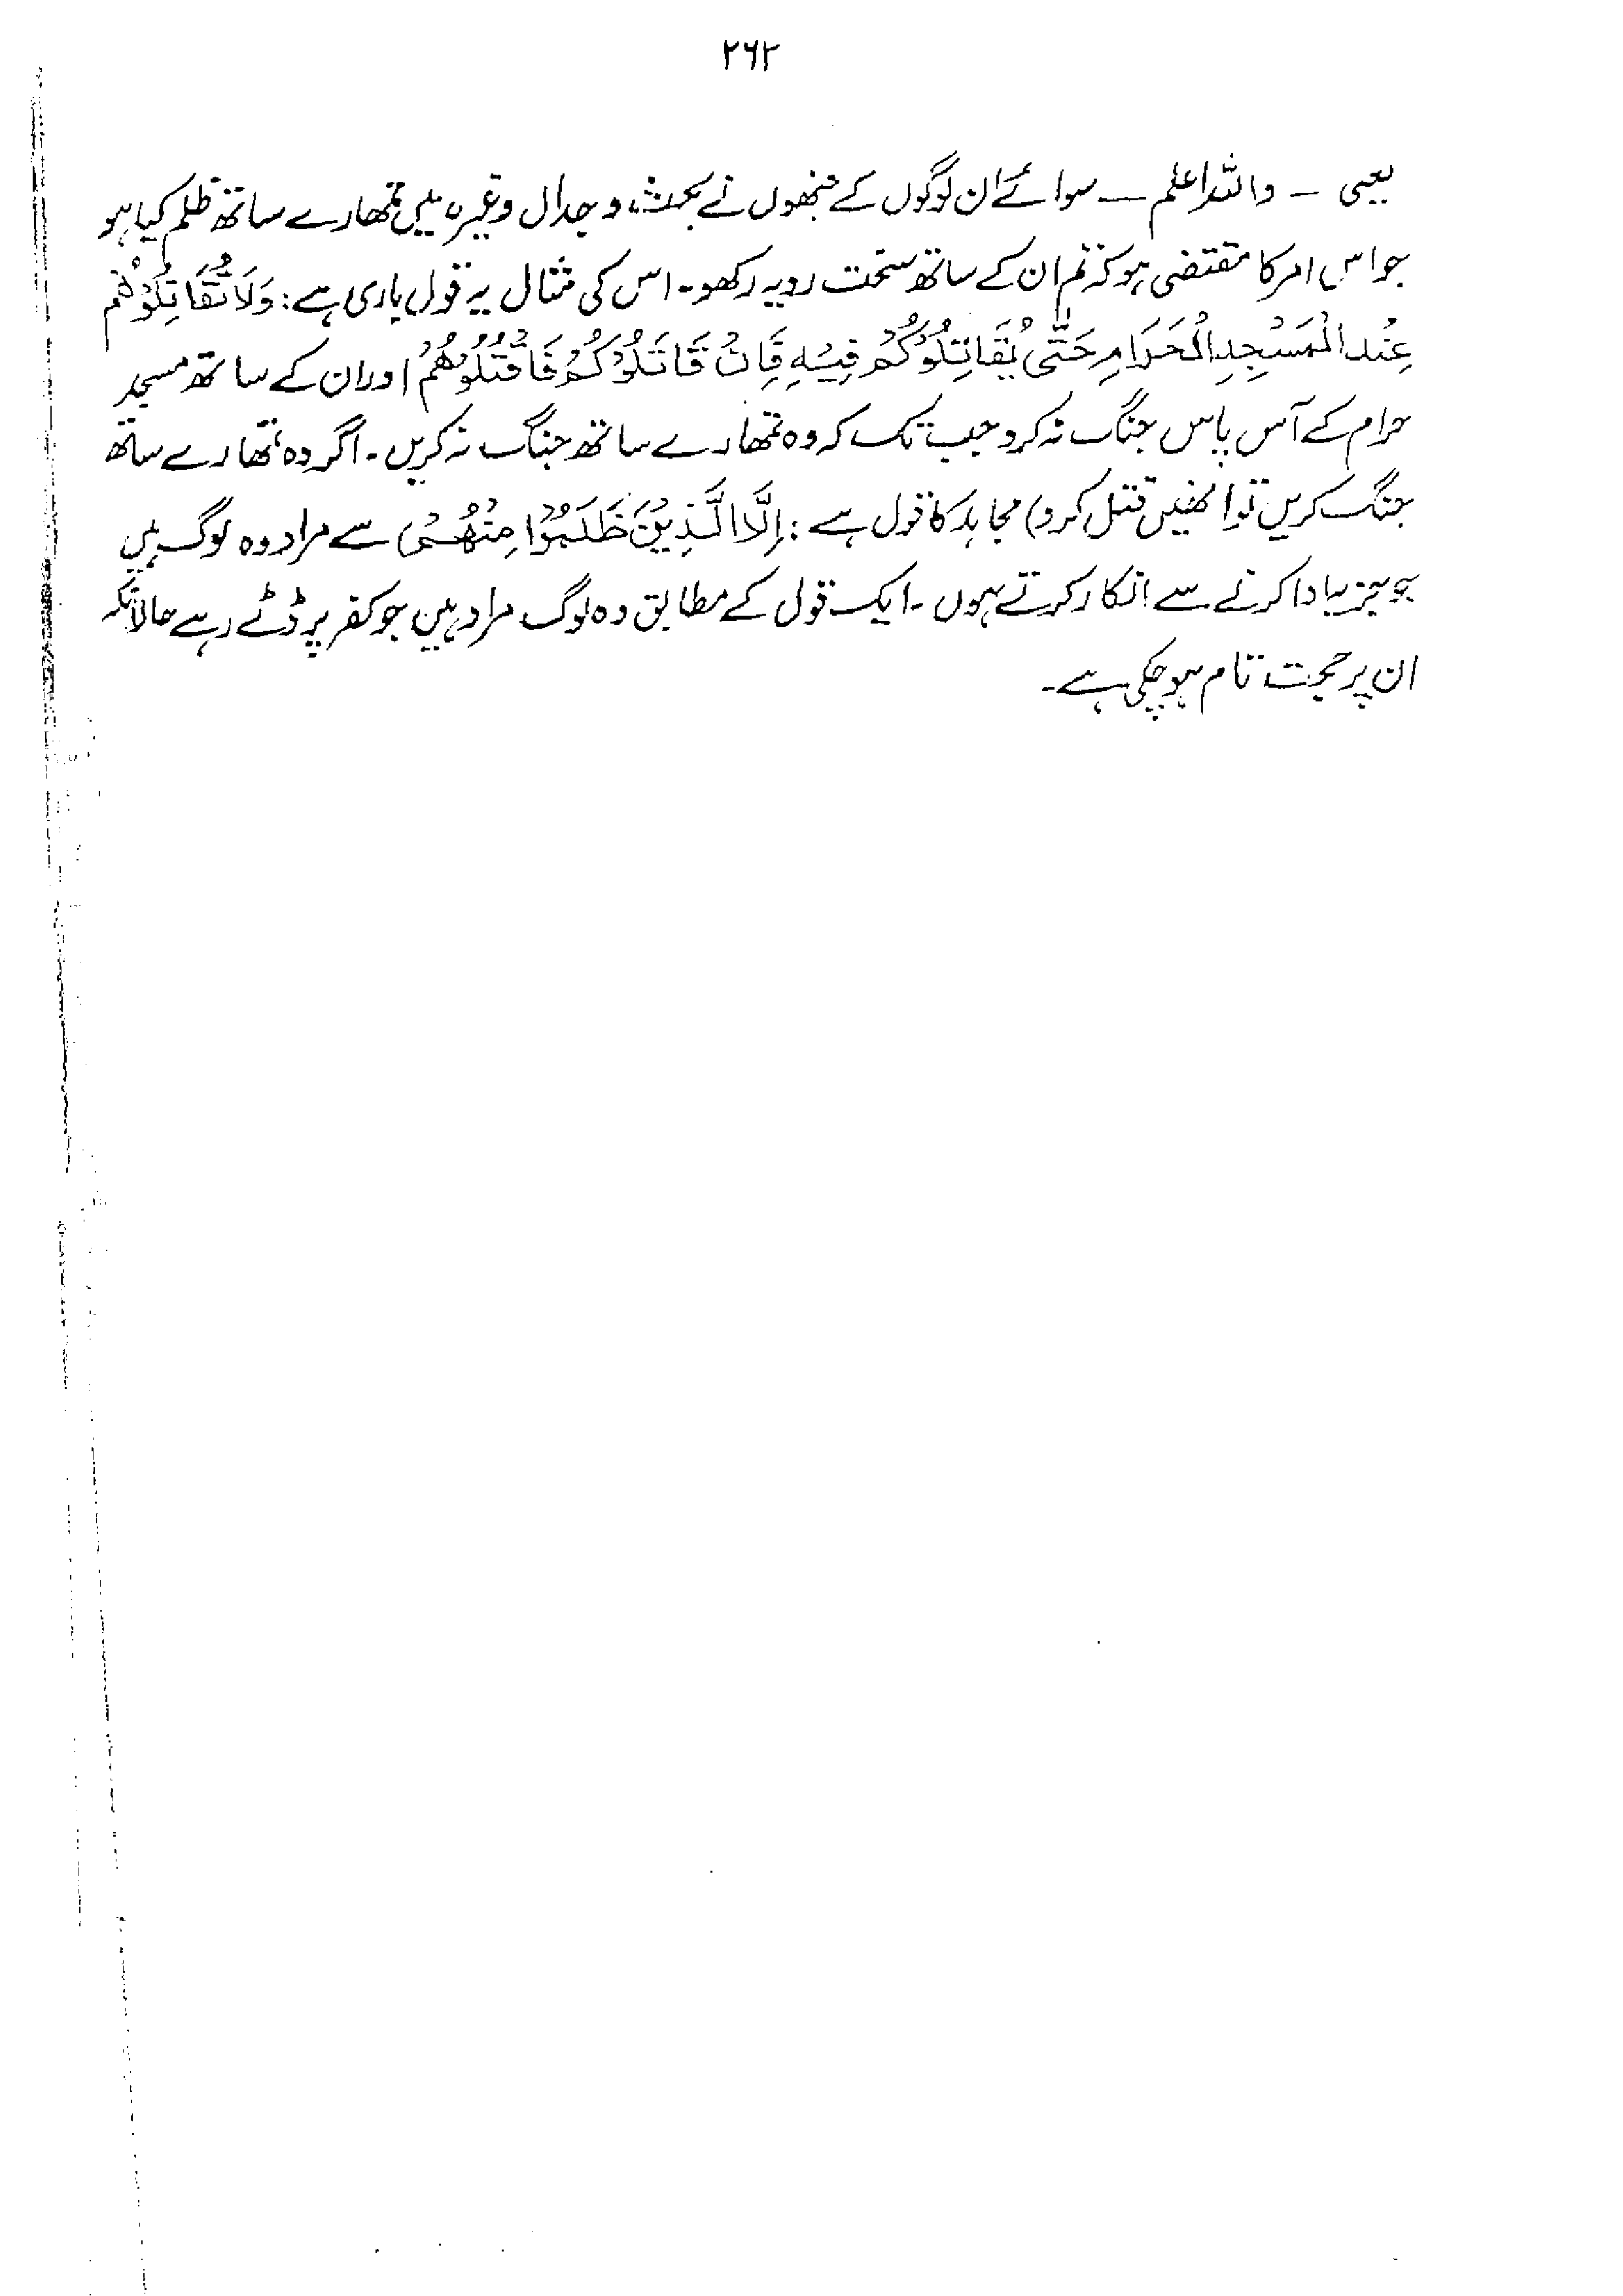 ۲۶۲
یعنی – واللہ اعلم – سوائے ان لوگوں کے جنھوں نے بحث و جدال وغیرہ میں تمھارے ساتھ ظلم کیا ہو
جو اس امر کا مقتضی ہو کہ تم ان کے ساتھ سخت رویہ رکھو۔ اس کی مثال یہ قول باری ہے: وَلَا تُقَاتِلُوْهُمْ
عِنْدَ الْمَسْجِدِ الْحَرَامِ حَتّٰى يُقَاتِلُوْكُمْ فِيْهِ فَاِنْ قَاتَلُوْكُمْ فَاقْتُلُوْهُمْ اور ان کے ساتھ مسجد
حرام کے آس پاس جنگ نہ کرو جب تک کہ وہ تمھارے ساتھ جنگ نہ کریں۔ اگر وہ تمھارے ساتھ
جنگ کریں تو انھیں قتل کرو) مجاہد کا قول ہے: اِلَّا الَّذِيْنَ ظَلَمُوْا مِنْهُمْ) سے مراد وہ لوگ ہیں
جو جزیہ ادا کرنے سے انکار کرتے ہوں۔ ایک قول کے مطابق وہ لوگ مراد ہیں جو کفر پر ڈٹے رہے حالانکہ
ان پر حجت تام ہو چکی ہے۔